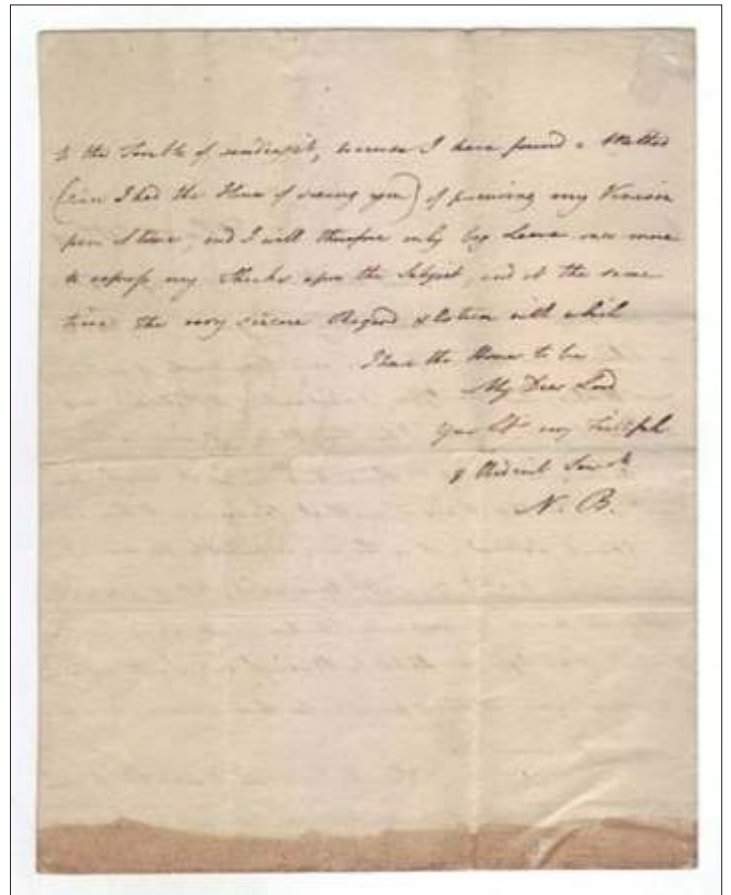 to the Trouble of sending it, because I have found a Method
(since I had the Honor of seeing you) of procuring my Venison
 and I will therefore only beg Leave once more
to express my Thanks upon the Subject, and at the same
time the very sincere Regard & Esteem with which
I have the Honor to be
My Dear Lord
your Lps very Faithful
& Obedient Servt
N. B.